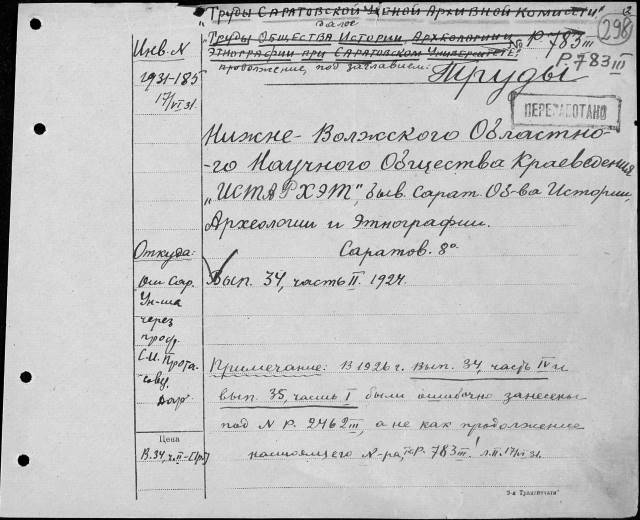 "Труды Саратовской Ученой Архивной Комиссии"
далее
298
Труды Общества Истории, Археологии и
Этнографии при Саратовском Университете;
№ Р 783 III
Р. 783 III
продолжение, под заглавием:
Труды
Инв. N
1931-185
17/VI 31.
ПЕРЕРАБОТАНО
Нижне-Волжского Областно-
-го Научного Общества Краеведения
"ИСТАРХЭТ", быв. Сарат. Об-ва Истории,
Археологии и Этнографии.
Саратов. 8°
Откуда:
От Сар.
Ун-та
через
проф.
С.И. Прота-
сову.
Дар
Вып. 34, часть II. 1924.
Примечание: В 1926 г. Вып. 34, часть IV и
вып. 35, часть I были ошибочно занесены
под N Р. 2462 III, а не как продолжение
настоящего N-ра, Р. 783 III! 17/VI 31.
Цена
В. 34, ч. II - [1р.]
3-я Транспечати